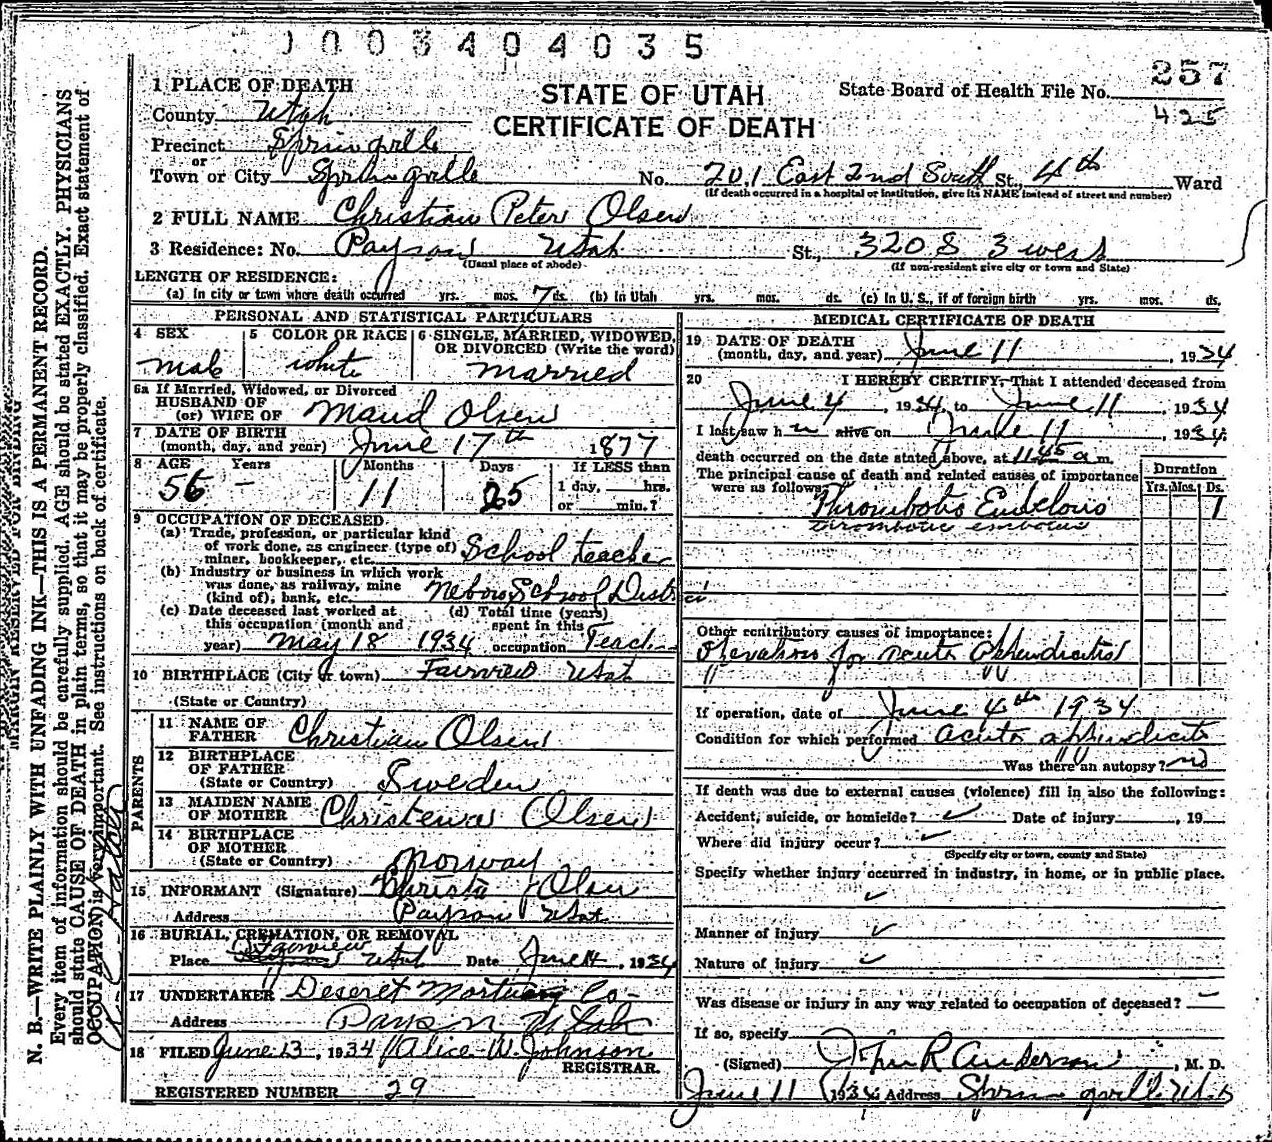 1003404035
257
1 PLACE OF DEATH
STATE OF UTAH
State Board of Health File No.
County Utah
425
CERTIFICATE OF DEATH
Precinct Springville
or
Town or City Springville No. 201 East 2nd South St., 4th Ward
(If death occurred in a hospital or institution, give its NAME instead of street and number)
2 FULL NAME Christian Peter Olsen
3 Residence: No. Payson Utah St., 320 S 3 west
(Usual place of abode) (If non-resident give city or town and State)
LENGTH OF RESIDENCE:
(a) In city or town where death occurred yrs. mos. 7 ds. (b) In Utah yrs. mos. ds. (c) In U. S., if of foreign birth yrs. mos. ds.
PERSONAL AND STATISTICAL PARTICULARS
4 SEX 5 COLOR OR RACE 6 SINGLE, MARRIED, WIDOWED, OR DIVORCED (Write the word)
male white married
6a If Married, Widowed, or Divorced
HUSBAND OF
(or) WIFE OF Maud Olsen
7 DATE OF BIRTH
(month, day, and year) June 17th 1877
8 AGE Years Months Days If LESS than
56 - 11 25 1 day, hrs.
or min.?
9 OCCUPATION OF DECEASED
(a) Trade, profession, or particular kind
of work done, as engineer (type of)
miner, bookkeeper, etc. School teacher
(b) Industry or business in which work
was done, as railway, mine
(kind of), bank, etc. Nebo School District
(c) Date deceased last worked at (d) Total time (years)
this occupation (month and spent in this
year) May 18 1934 occupation Teach
10 BIRTHPLACE (City or town) Fairview Utah
(State or Country)
PARENTS
11 NAME OF
FATHER Christian Olsen
12 BIRTHPLACE
OF FATHER
(State or Country) Sweden
13 MAIDEN NAME
OF MOTHER Christena Olsen
14 BIRTHPLACE
OF MOTHER
(State or Country) Norway
15 INFORMANT (Signature) Christa J Olsen
Address Payson Utah
16 BURIAL, CREMATION, OR REMOVAL
Fairview
Place Utah Date June 14, 1934
17 UNDERTAKER Deseret Mortuary Co-
Address Payson, Utah
18 FILED June 13, 1934 Alice W. Johnson
REGISTRAR.
REGISTERED NUMBER 29
MEDICAL CERTIFICATE OF DEATH
19 DATE OF DEATH
(month, day, and year) June 11, 1934
20 I HEREBY CERTIFY, That I attended deceased from
June 4, 1934 to June 11, 1934
I last saw him alive on June 11, 1934
death occurred on the date stated above, at 11 45 a m.
The principal cause of death and related causes of importance
were as follows:
Duration
Yrs. Mos. Ds.
Thrombotic Embolous 1
thrombotic embolus
Other contributory causes of importance:
Operation for acute Appendicitis
" "
If operation, date of June 4th 1934
Condition for which performed acute appendicitis
Was there an autopsy? no
If death was due to external causes (violence) fill in also the following:
Accident, suicide, or homicide? ✓ Date of injury , 19
Where did injury occur? ✓
(Specify city or town, county and State)
Specify whether injury occurred in industry, in home, or in public place.
✓
Manner of injury ✓
Nature of injury ✓
Was disease or injury in any way related to occupation of deceased? -
If so, specify
(Signed) John R Anderson, M. D.
June 11 1934 Address Springville Utah
MARGIN RESERVED FOR BINDING
N. B.—WRITE PLAINLY WITH UNFADING INK—THIS IS A PERMANENT RECORD.
Every item of information should be carefully supplied. AGE should be stated EXACTLY. PHYSICIANS
should state CAUSE OF DEATH in plain terms, so that it may be properly classified. Exact statement of
OCCUPATION is very important. See instructions on back of certificate.